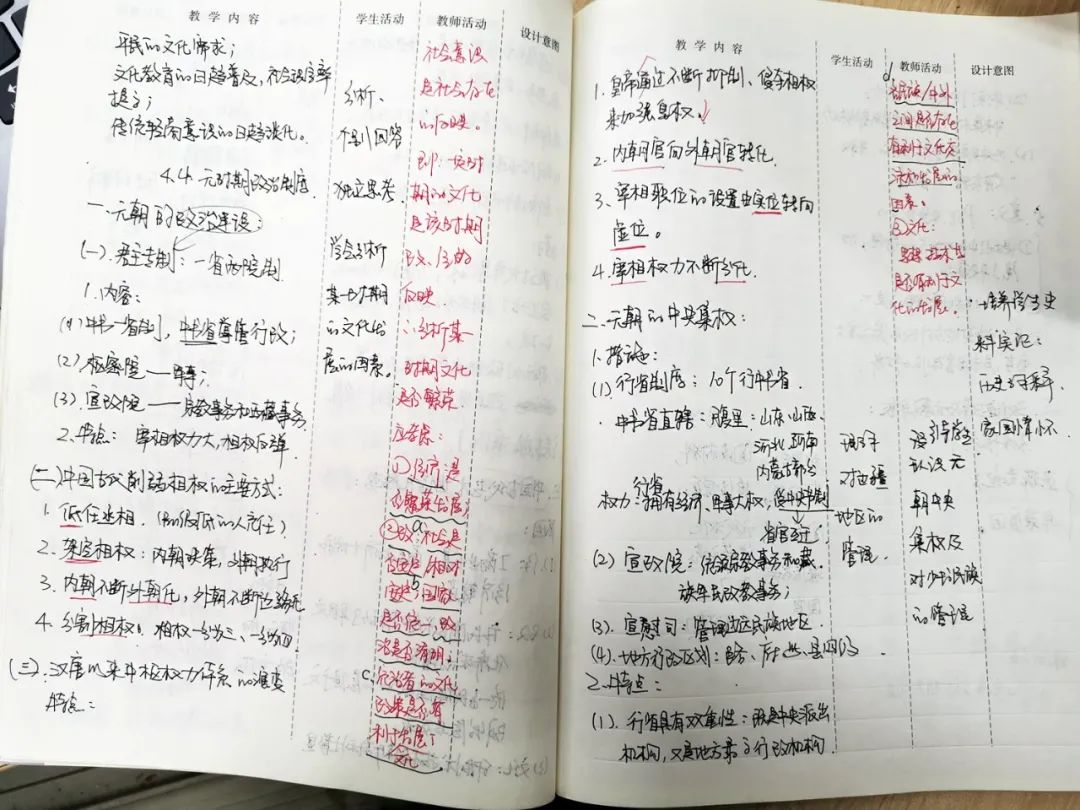 教 学 内 容
平民的文化需求；
文化教育的日趋普及，社会识字率
提高；
传统轻商意识的日趋淡化。
4.4 元时期政治制度
一、元朝的政治建设：
(一)、君主专制：一省两院制
1.内容：
(1)中书一省制，中书省掌管行政；
(2)枢密院——军事；
(3)宣政院——宗教事务和西藏事务
2.特点：宰相权力大，相权反弹
(二)中国古代削弱相权的主要方式：
1.低任丞相.
2.架空相权：内朝决策，外朝执行
3.内朝不断外朝化，
4.分割相权：相权一分为三、一分为四
(三)、汉唐以来中枢权力体系的演变
特点：
学生活动
分析、
个别回答
独立思考.
学会分析
某一时期
的文化发
展的因素。
教师活动
社会意识
是社会存在
的反映。
即：一定时
期的文化
是该时期
政、经的
反映
分析某
时期文化
是否繁荣
应考虑：
①经济：是
否繁荣发展；
②政：a社会是
否安定/相对
安定；b国家
是否统一、政
治是否清明；
c.统治者的文化
政策是否有
利于发展
文化
设计意图
教 学 内 容
1.皇帝通过不断抑制、侵夺相权
来加强皇权。
2.内朝官向外朝官转化.
3、宰相职位的设置由实位转向
虚位。
4.宰相权力不断分化.
二、元朝的中央集权：
1.措施：
(1).行省制度：10个行中书省.
中书省直辖：腹里：山东、山西、
河北、河南
内蒙古部分
权力：行省拥有经济、军事大权，受中央节制
(2)宣政院：统领宗教事务和藏
族军民政教事务；
(3).宣慰司：管理边区民族地区.
(4).地方行政区划：
2.特点：
(1).行省具有双重性：既是中央派出
机构，又是地方最高行政机构.
学生活动
对边疆
地区的
管理.
教师活动
d.民族/中外
之间是否存在
有利于文化交
流和发展的
因素。
③文化：
是否有利于文
化的发展。
设引导学生
认识元
朝中央
集权及
对少数民族
的管理
设计意图
培养学生史
料实证：
历史解释
家国情怀.